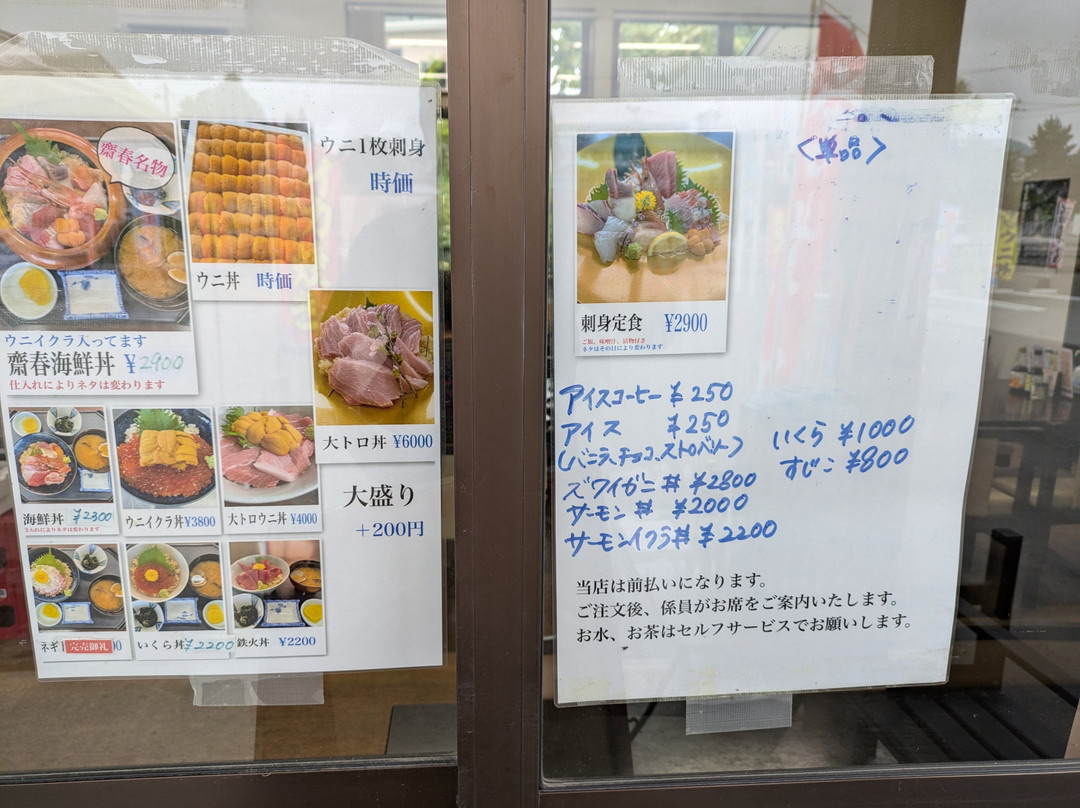 齋春名物
ウニ1枚刺身
時価
ウニ丼 時価
ウニイクラ入ってます
齋春海鮮丼 ¥2900
仕入れによりネタは変わります
大トロ丼 ¥6000
大盛り
+200円
海鮮丼 ¥2300
仕入れによりネタは変わります
ウニイクラ丼 ¥3800
大トロウニ丼 ¥4000
ネギ
完売御礼
いくら丼 ¥2200
鉄火丼 ¥2200
<単品>
刺身定食 ¥2900
ご飯、味噌汁、漬物付き
ネタはその日により変わります
アイスコーヒー ¥250
アイス ¥250
(バニラ、チョコ、ストロベリー)
ズワイガニ丼 ¥2800
サーモン丼 ¥2000
サーモンイクラ丼 ¥2200
いくら ¥1000
すじこ ¥800
当店は前払いになります。
ご注文後、係員がお席をご案内いたします。
お水、お茶はセルフサービスでお願いします。